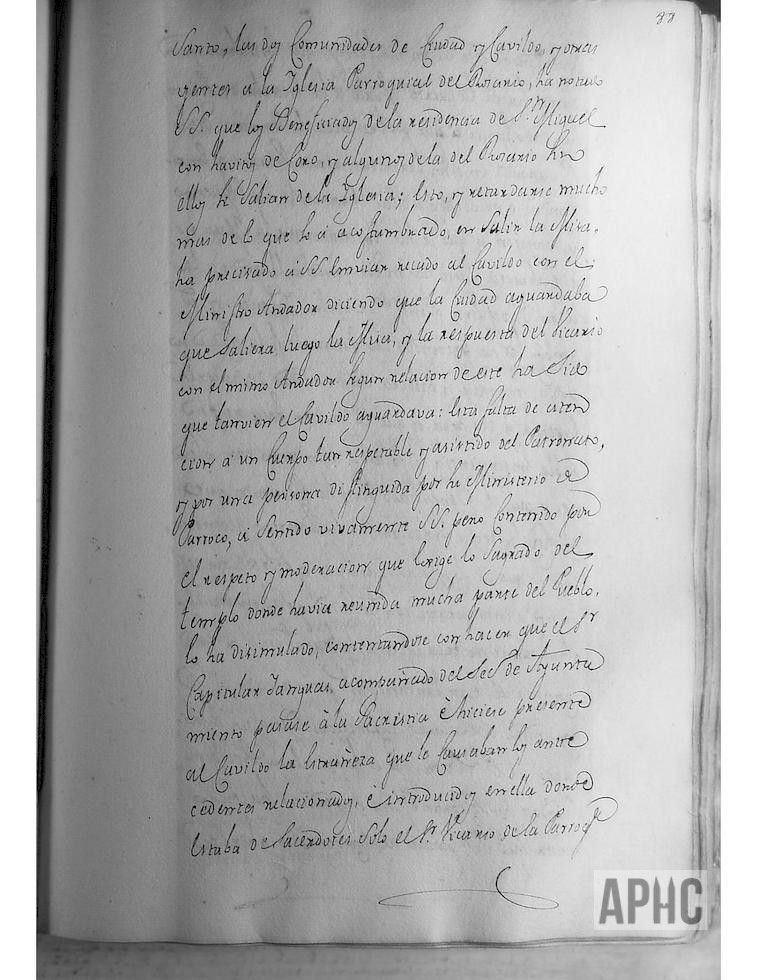 88
Santo, las dos Comunidades de Ciudad y Cavildo, y otras
gentes a la Iglesia Parroquial del Rosario, ha notado
SS. que los Beneficiados de la residencia de Sn. Miguel
con havitos de Coro, y algunos de la del Rosario sin
ellos se Salian de la Iglesia; Esto, y retardarse mucho
mas de lo que se a acostumbrado, en Salir la Misa,
ha precisado a SS. Enviar recado al Cavildo con el
Ministro Andador diciendo que la Ciudad aguardaba
que Saliera luego la Misa, y la respuesta del Vicario
con el mismo Andador segun relacion de este ha Sido
que tanvien el Cavildo aguardava: Esta falta de aten
cion a un Cuerpo tan respetable y asistido del Patronato,
y por una persona distinguida por su Ministerio de
Parroco, a Sentido vivamente SS. pero Contenido por
el respeto y moderacion que Exige lo Sagrado del
templo donde havia reunida mucha parte del Pueblo,
lo ha disimulado, contentandose con hacer que el Sr
Capitular Tanguas acompañado del Secº de Ayunta
miento pasase à la Sacristia è hiciese presente
al Cavildo la Estrañeza que le Causaban los ante
cedentes relacionados, è introducidos en ella donde
Estaba de Sacerdotes Solo el Sr. Vicario de la Parroqe
APHC